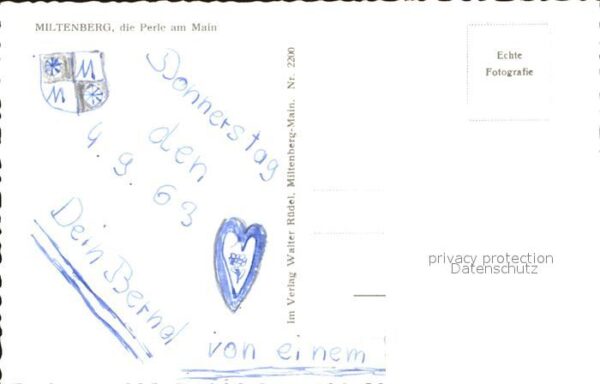 MILTENBERG, die Perle am Main
M
M
Donnerstag
den
4. 9. 63
Dein Bernd
von einem
Im Verlag Walter Rüdel, Miltenberg-Main, Nr. 2200
Echte
Fotografie
privacy protection
Datenschutz